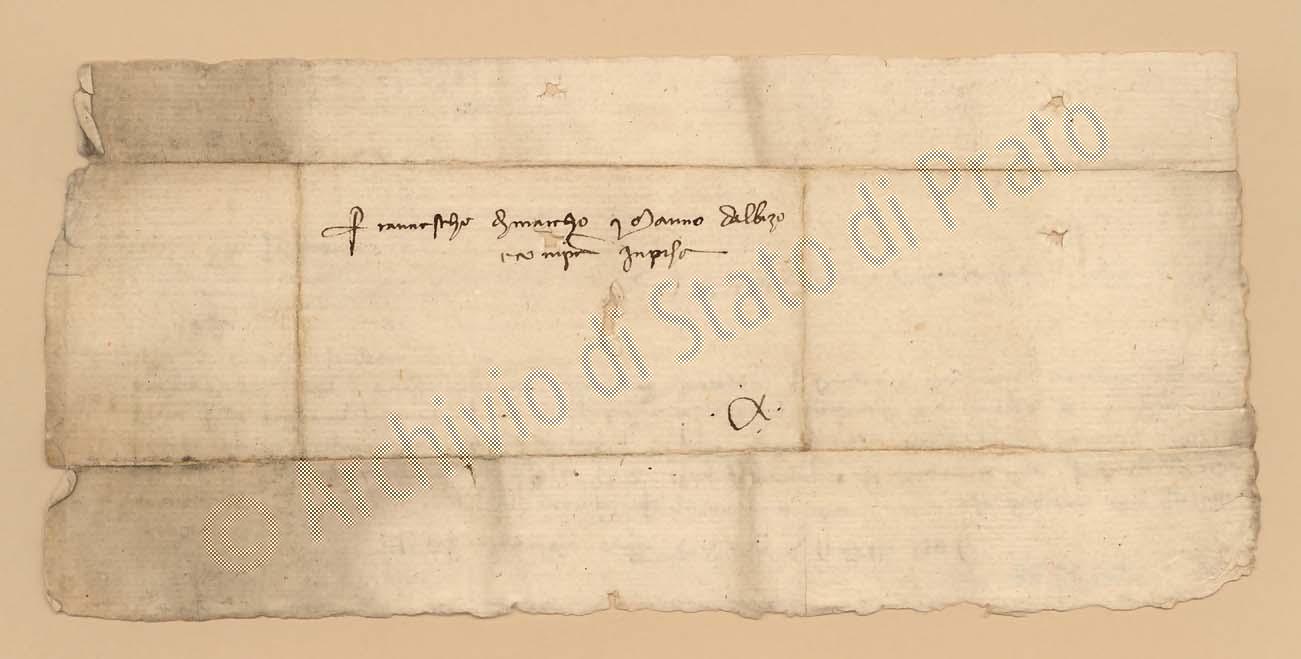 Franciescho di marcho e Manno dalbizo
e conpa in pisa
© Archivio di Stato di Prato